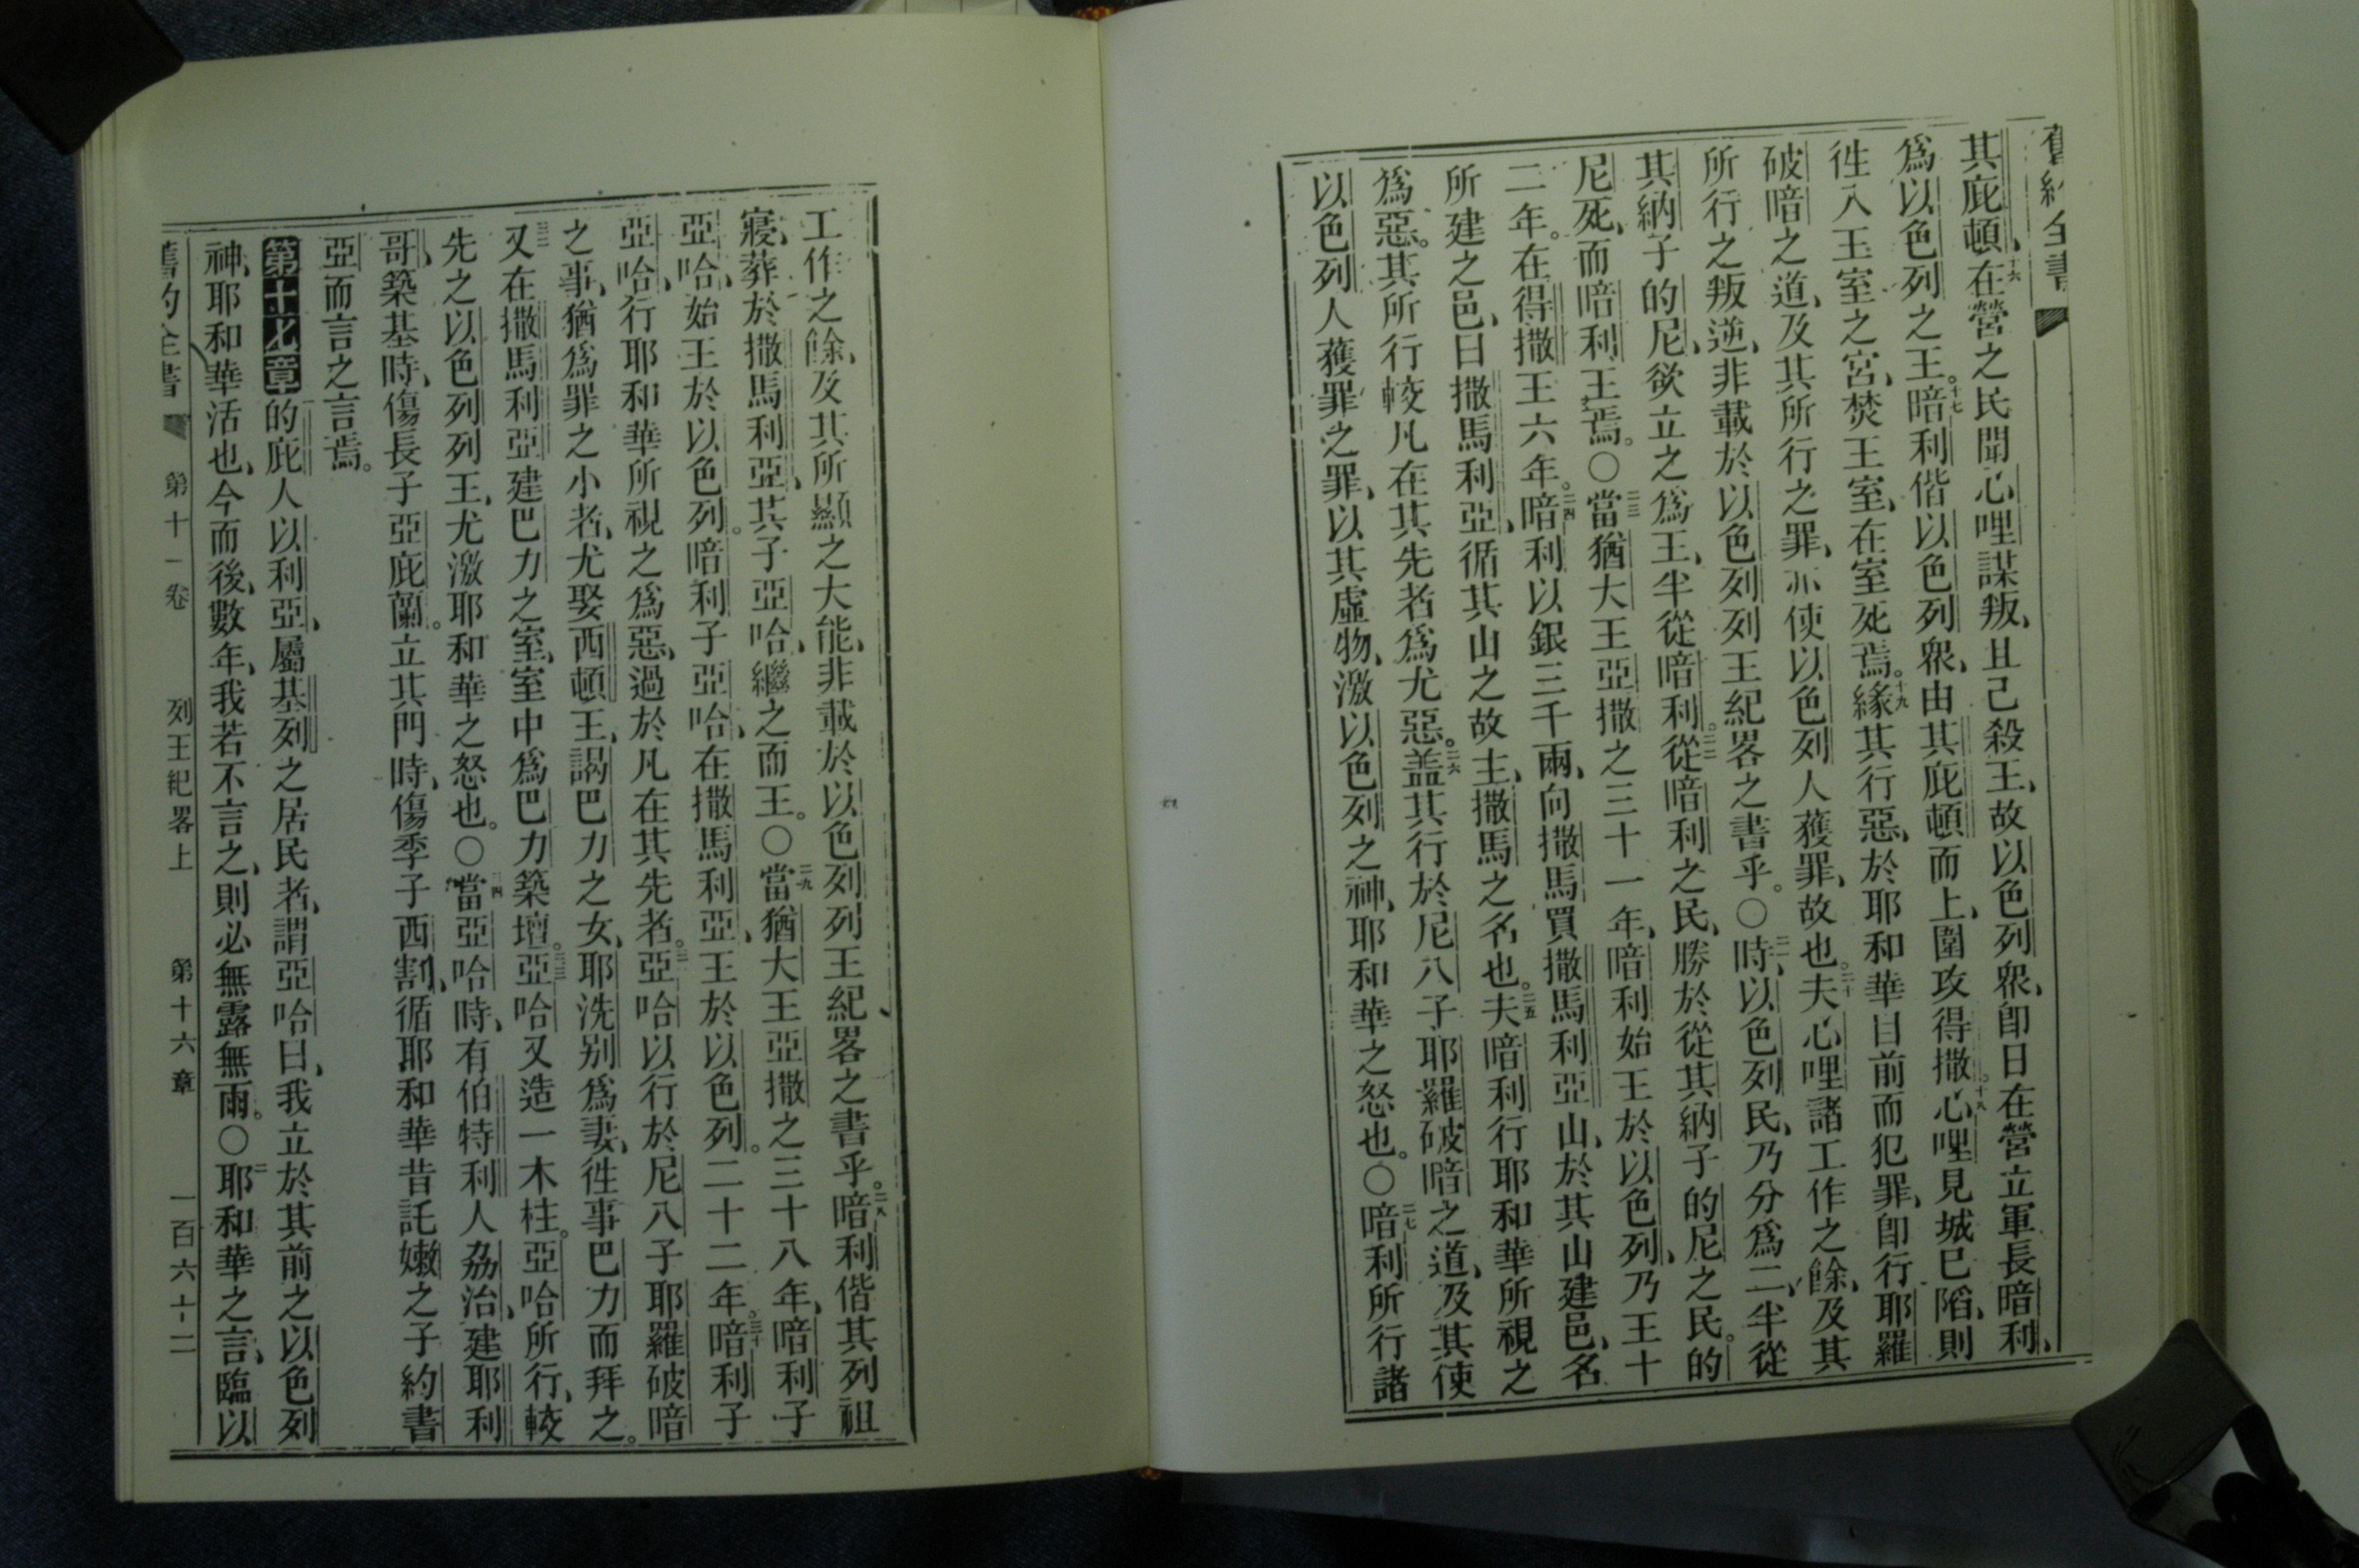 舊約全書
其庇頓、十六在營之民聞心哩謀叛、且己殺王、故以色列衆、卽日在營立軍長暗利、
爲以色列之王。十七暗利偕以色列衆、由其庇頓而上、圍攻得撒。十八心哩見城已陷、則
徃入王室之宮、焚王室、在室死焉。十九緣其行惡、於耶和華目前而犯罪、卽行耶羅
破暗之道、及其所行之罪、亦使以色列人獲罪、故也。二十夫心哩諸工作之餘、及其
所行之叛逆、非載於以色列列王紀畧之書乎。〇二一時、以色列民、乃分爲二、半從
其納子的尼、欲立之爲王、半從暗利。二二從暗利之民、勝於從其納子的尼之民。的
尼死、而暗利王焉。〇二三當猶大王亞撒之三十一年、暗利始王於以色列、乃王十
二年。在得撒王六年。二四暗利以銀三千兩、向撒馬買撒馬利亞山、於其山建邑、名
所建之邑、曰撒馬利亞、循其山之故主、撒馬之名也。二五夫暗利行耶和華所視之
爲惡。其所行較凡在其先者爲尤惡。二六盖其行於尼八子耶羅破暗之道、及其使
以色列人獲罪之罪、以其虛物、激以色列之神、耶和華之怒也。〇二七暗利所行諸
工作之餘、及其所顯之大能、非載於以色列列王紀畧之書乎。二八暗利偕其列祖
寢、葬於撒馬利亞、其子亞哈、繼之而王。〇二九當猶大王亞撒之三十八年、暗利子
亞哈、始王於以色列。暗利子亞哈、在撒馬利亞、王於以色列。二十二年。三十暗利子
亞哈、行耶和華所視之爲惡、過於凡在其先者。三一亞哈以行於尼八子耶羅破暗
之事、猶爲罪之小者、尤娶西頓王、謁巴力之女、耶洗别爲妻、徃事巴力而拜之。
三二又在撒馬利亞建巴力之室、室中爲巴力築壇。三三亞哈又造一木柱。亞哈所行、較
先之以色列列王、尤激耶和華之怒也。〇三四當亞哈時、有伯特利人劦治、建耶利
哥、築基時、傷長子亞庇蘭。立其門時、傷季子西割、循耶和華昔託嫩之子約書
亞而言之言焉。
第十七章 的庇人以利亞、屬基列之居民者、謂亞哈曰、我立於其前之以色列
神、耶和華活也、今而後、數年、我若不言之、則必無露無雨。〇二耶和華之言、臨以
舊約全書 第十一卷 列王紀畧上 第十六章 一百六十二